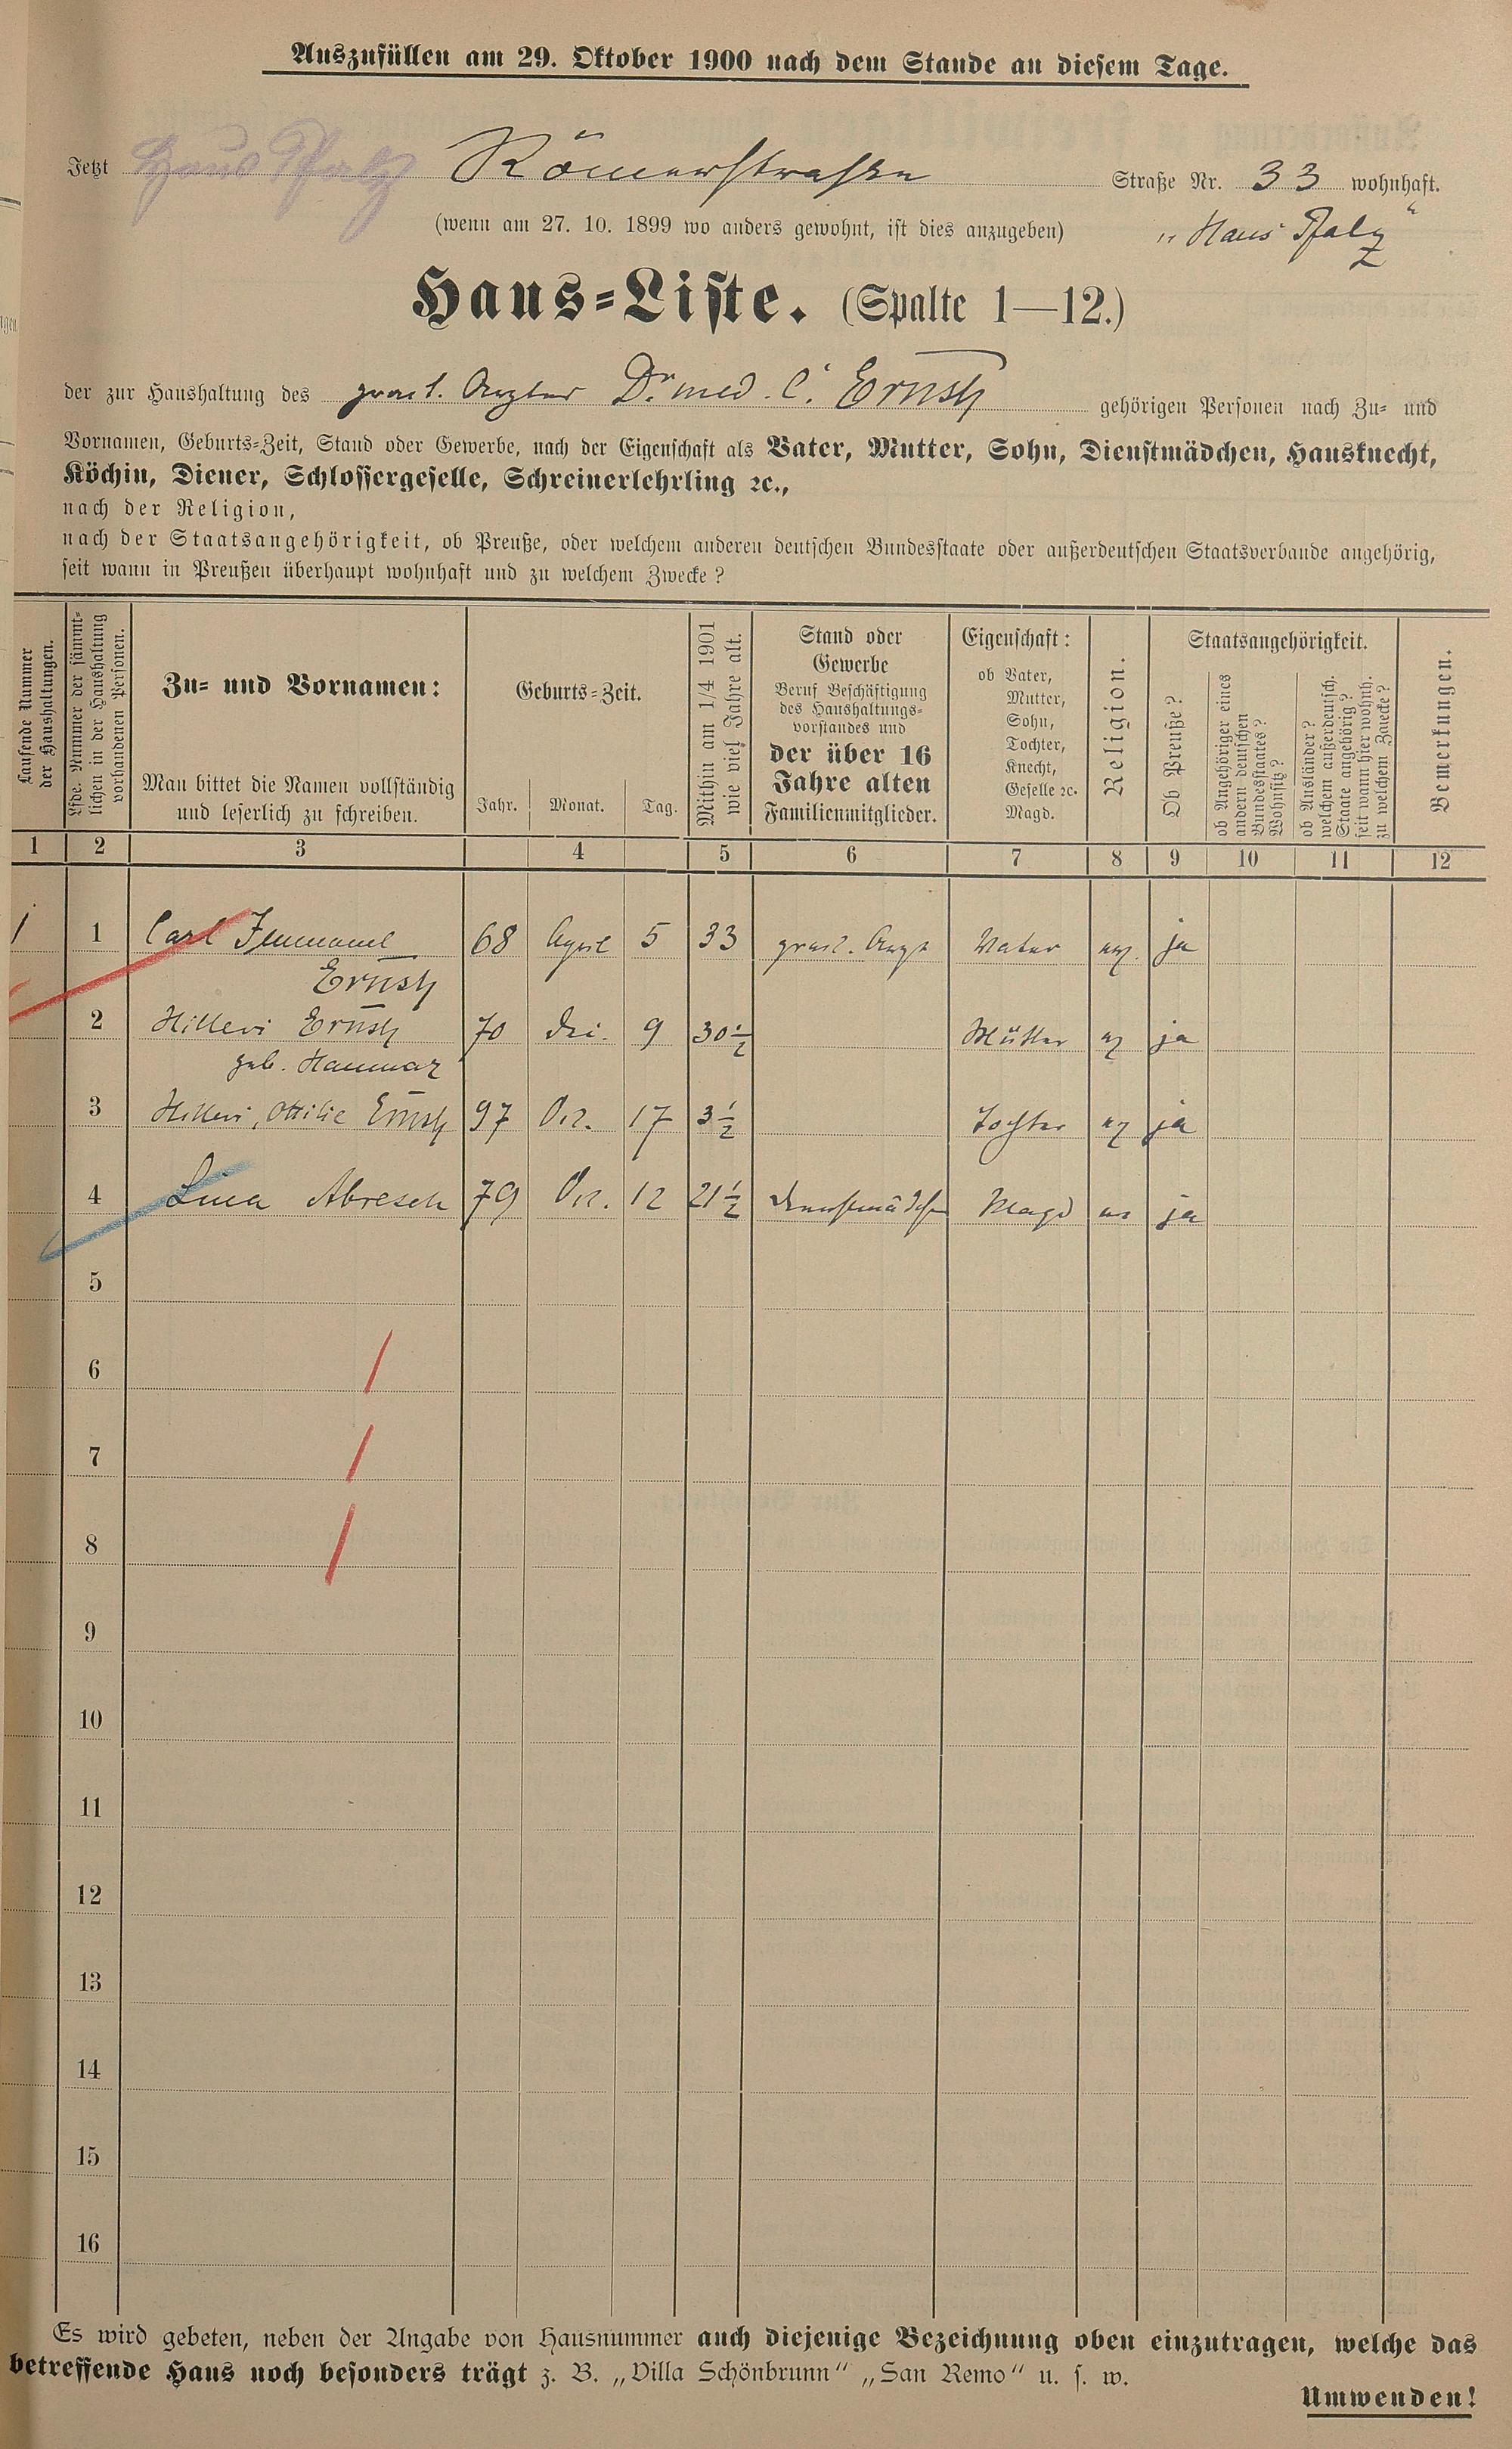 Auszufüllen am 29. Oktober 1900 nach dem Stande an diesem Tage.
Jetzt Haus Pfalz Römerstraße Straße Nr. 33 wohnhaft.
(wenn am 27. 10. 1899 wo anders gewohnt, ist dies anzugeben) „Haus Pfalz“
Haus=Liste. (Spalte 1—12.)
der zur Haushaltung des pract. Arztes Dr. med. C. Ernst gehörigen Personen nach Zu= und
Vornamen, Geburts=Zeit, Stand oder Gewerbe, nach der Eigenschaft als Vater, Mutter, Sohn, Dienstmädchen, Hausknecht,
Köchin, Diener, Schlossergeselle, Schreinerlehrling ꝛc.,
nach der Religion,
nach der Staatsangehörigkeit, ob Preuße, oder welchem anderen deutschen Bundesstaate oder außerdeutschen Staatsverbande angehörig,
seit wann in Preußen überhaupt wohnhaft und zu welchem Zwecke?
Laufende Nummer
der Haushaltungen.
Lfde. Nummer der sämmt-
lichen in der Haushaltung
vorhandenen Personen.
Zu= und Vornamen:
Man bittet die Namen vollständig
und leserlich zu schreiben.
Geburts=Zeit.
Jahr. Monat. Tag.
Mithin am 1/4 1901
wie viel Jahre alt.
Stand oder
Gewerbe
Beruf Beschäftigung
des Haushaltungs=
vorstandes und
der über 16
Jahre alten
Familienmitglieder.
Eigenschaft:
ob Vater,
Mutter,
Sohn,
Tochter,
Knecht,
Geselle ꝛc.
Magd.
Religion.
Staatsangehörigkeit.
Ob Preuße?
ob Angehöriger eines
andern deutschen
Bundesstaates?
Wohnsitz?
ob Ausländer?
welchem außerdeutsch.
Staate angehörig?
seit wann hier wohnh.
zu welchem Zwecke?
Bemerkungen.
1 2 3 4 5 6 7 8 9 10 11 12
1 1 Carl Immanuel 68 April 5 33 pract. Arzt Vater ev. ja
Ernst
2 Hillevi Ernst 70 9 30 1/2 Mutter ev ja
geb. Hammar
3 Hillevi, Ottilie Ernst 97 Oct. 17 3 1/2 Tochter ev ja
4 Lina Abresch 79 Oct. 12 21 1/2 Dienstmädchen Magd ev ja
5
6
7
8
9
10
11
12
13
14
15
16
Es wird gebeten, neben der Angabe von Hausnummer auch diejenige Bezeichnung oben einzutragen, welche das
betreffende Haus noch besonders trägt z. B. „Villa Schönbrunn“ „San Remo“ u. s. w.
Umwenden!